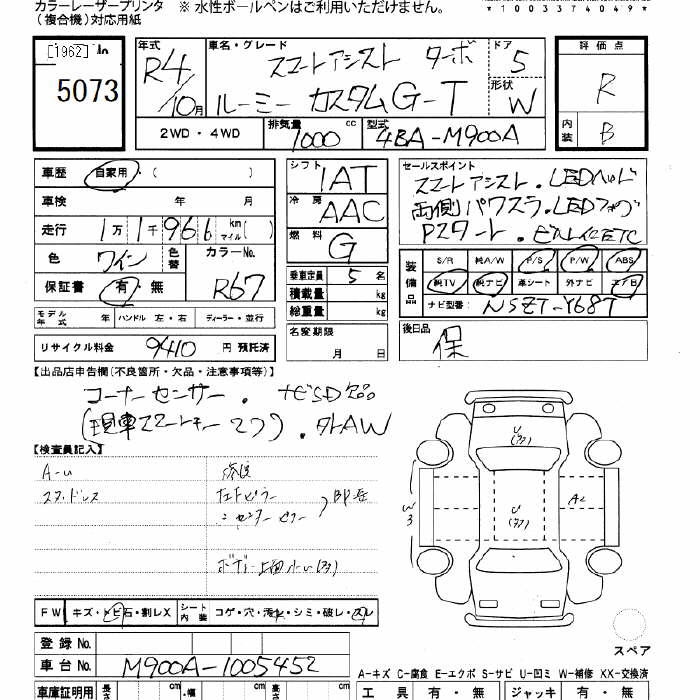 カラーレーザープリンタ ※水性ボールペンはご利用いただけません。
(複合機)対応用紙 *1003374049*
[1962] No.
5073
年式 R4/10月
車名・グレード スマートアシスト ターボ
ルーミー カスタムG-T
ドア 5
形状 W
評価点 R
内装 B
2WD・4WD 排気量 1000 cc 型式 4BA-M900A
車歴 自家用・( )
車検 年 月
走行 1万1千966 km(マイル)( )
色 ワイン 色替 カラーNo. R67
保証書 有・無
モデル年式 年 ハンドル 左・右 ディーラー・並行
リサイクル料金 9410 円 預託済
シフト IAT
冷房 AAC
燃料 G
乗車定員 5 名
積載量 kg
総重量 kg
名変期限
月 日
セールスポイント
スマートアシスト.LEDヘッド
両側パワスラ.LEDフォグ
Pスタート.ビルトインETC
装備品 S/R 純A/W P/S P/W ABS
純TV 純ナビ 革シート 外ナビ エ/B
ナビ型番: NSZT-Y68T
後日品
保
【出品店申告欄(不良箇所・欠品・注意事項等)】
コーナーセンサー. ナビSD欠品
(現車スマートキー2ケ).外AW
【検査員記入】
A-U
修復
センターピラー
FW キズ・トビ石・割レX シート内装 コゲ・穴・汚レ・シミ・破レ・スレ
U
U
W3
A2
スペア
登録 No.
車台 No. M900A-1005452
車庫証明用 長さ cm 幅 cm 高さ cm
A-キズ C-腐食 E-エクボ S-サビ U-凹ミ W-補修 XX-交換済
工具 有・無 ジャッキ 有・無